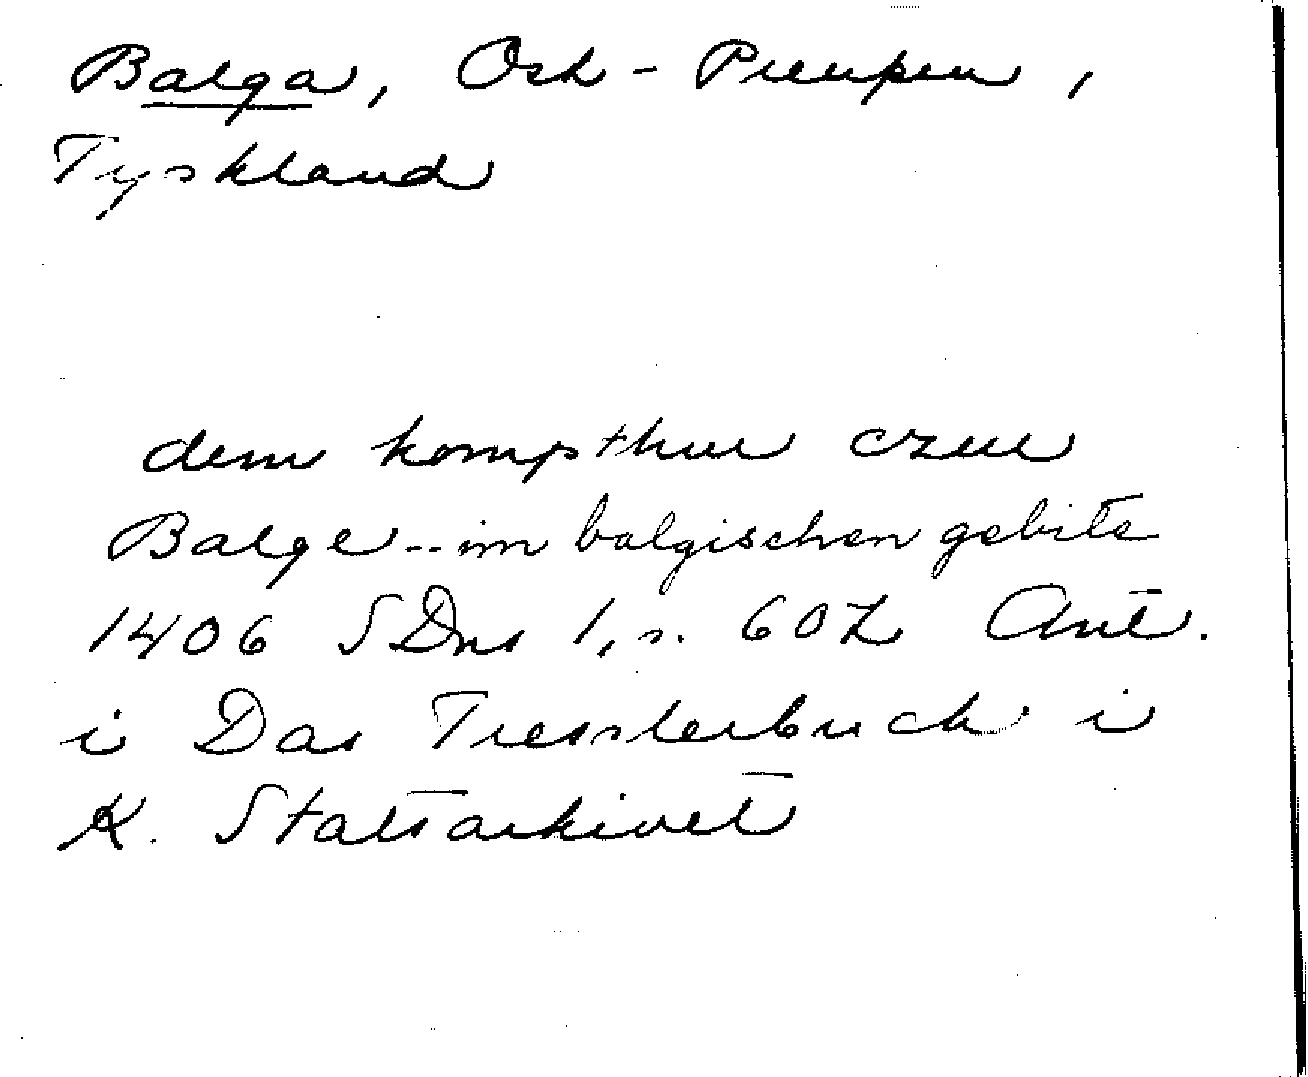 Balga, Ost-Preupen,
Tyskland
dem kompthur czur
Balge -- im balgischen gebite
1406 SDns 1, s. 607 Ant.
i Das Tresslerbuch i
K. Statsarkivet